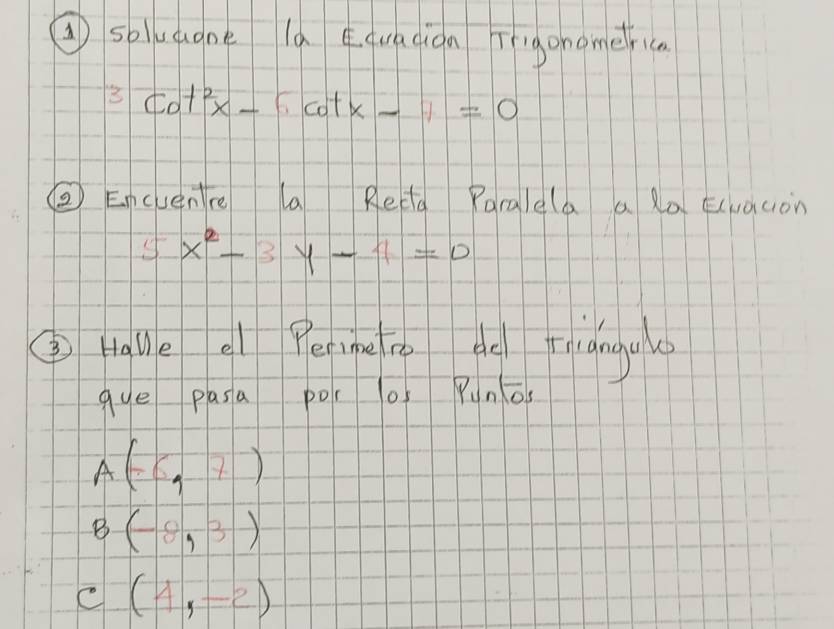 ① Solucione la Ecuación Trigonometrica
3 cot²x - 6 cotx - 7 = 0
② Encuentre la Recta Paralela a la Ecuación
5x² - 3y - 4 = 0
③ Halle el Perimetro del triángulo
que pasa por los Puntos
A(-6, 7)
B(-8, 3)
C(4, -2)